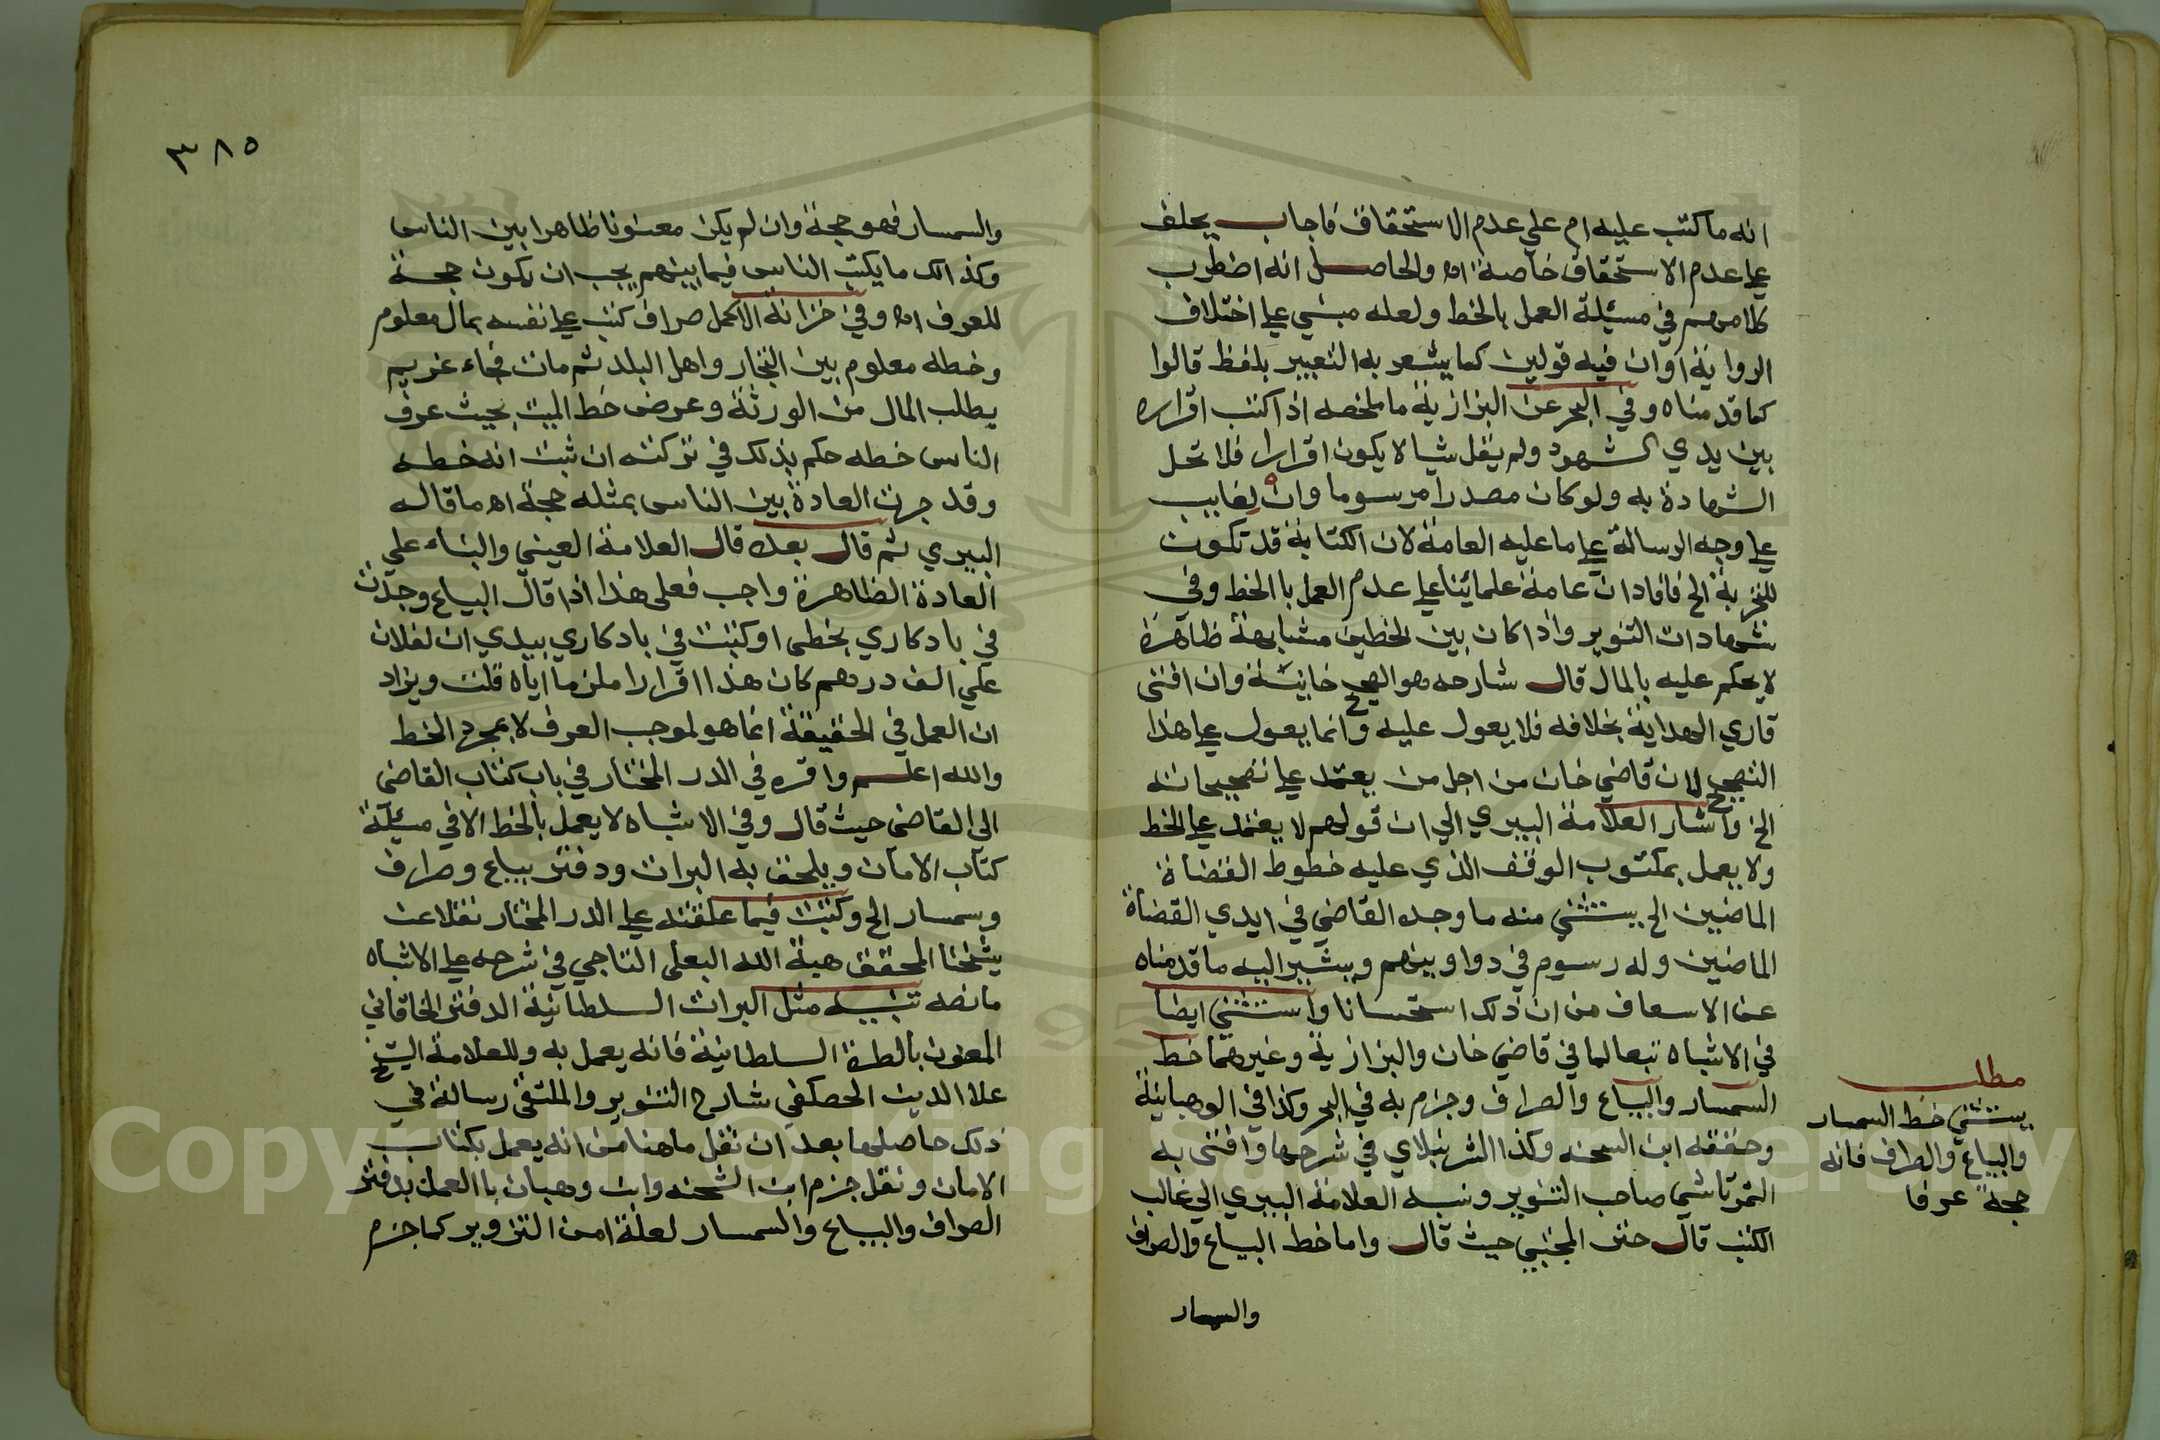 انه ما كتب عليه ام علي عدم الاستحقاق فاجاب يحلف
علي عدم الاستحقاق خاصة اه والحاصل انه اضطرب
كلامهم في مسئلة العمل بالخط ولعله مبني علي اختلاف
الرواية او ان فيه قولين كما يشعر به التعبير بلفظ قالوا
كما قدمناه وفي البحر عن البزازية ما ملخصه اذا كتب اقراره
بين يدي الشهود ولم يقل شيا لا يكون اقرارا فلا تحل
الشهادة به ولو كان مصدرا مرسوما وان لغايب
علي وجه الرسالة علي ما عليه العامة لان الكتابة قد تكون
للتجربة الخ فافاد ان عامة علمائنا علي عدم العمل با الخط وفي
شهادات التنوير واذا كان بين الخطين مشابهة ظاهرة
لا يحكم عليه بالمال قال شارحه هو الصحيح خانية وان افتى
قاري الهداية بخلافه فلا يعول عليه وانما يعول علي هذا
التصحيح لان قاضي خان من اجل من يعتمد علي تصحيحاته
الخ واشار العلامة البيري الي ان قولهم لا يعتمد علي الخط
ولا يعمل بمكتوب الوقف الذي عليه خطوط القضاة
الماضيين الخ يستثني منه ما وجده القاضي في ايدي القضاة
الماضين وله رسوم في دواوينهم ويشير اليه ما قدمناه
عن الاسعاف من ان ذلك استحسانا واستثني ايضا
في الاشباه تبعا لما في قاضي خان والبزازية وغيرهما خط
السمسار والبياع والصراف وجزم به في البحر وكذا في الوهبانية
وحققه ابن الشحنه وكذا الشرنبلاي في شرحها وافتى به
التمرتاشي صاحب التنوير ونسبه العلامة البيري الي غالب
الكتب قال حتى المجتبي حيث قال واما خط البياع والصراف
والسمسار
مطلب
يستثني خط السمسار
والبياع والصراف فانه
حجة عرفا
٣٨٥
والسمسار فهو حجة وان لم يكن معنونا ظاهرا بين الناس
وكذالك ما يكتب الناس فيما بينهم يجب ان يكون حجة
للعرف اه وفي خزانة الاكمل صراف كتب علي نفسه بمال معلوم
وخطه معلوم بين التجار واهل البلد ثم مات فجاء غريم
يطلب المال من الورثة وعرض خط الميت بحيث عرف
الناس خطه حكم بذلك في تركته ان ثبت انه خطه
وقد جرت العادة بين الناس بمثله حجة اه ما قاله
البيري ثم قال بعده قال العلامة العيني والبناء علي
العادة الظاهرة واجب فعلى هذا اذا قال البياع وجدت
في بادكاري بخطي او كتبت في بادكاري بيدي ان لفلان
علي الف درهم كان هذا اقرارا ملزما اياه قلت ويزاد
ان العمل في الحقيقة انما هو لموجب العرف لا بمجرد الخط
والله اعلم واقره في الدر المختار في باب كتاب القاضي
الي القاضي حيث قال وفي الاشباه لا يعمل بالخط الا في مسئلة
كتاب الامان ويلحق به البرات ودفتر بياع وصراف
وسمسار الخ وكتبت فيما علقته علي الدر المختار نقلا عن
شيخنا المحقق هبة الله البعلي التاجي في شرحه علي الاشباه
ما نصه تنبيه مثل البرات السلطانية الدفتر الخاقاني
المعنون بالطرة السلطانية فانه يعمل به وللعلامة الشيخ
علا الدين الحصكفي شارح التنوير والملتقى رسالة في
ذلك حاصلها بعد ان نقل ما هنا من انه يعمل بكتاب
الامان ونقل جزم ابن الشحنه وابن وهبان با العمل بدفتر
الصراف والبياع والسمسار لعلة امن التزوير كما جزم